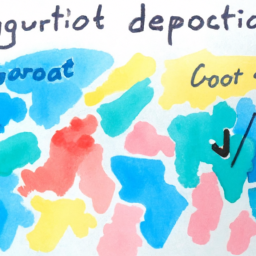 gurtiot depoctic
oroat Coot